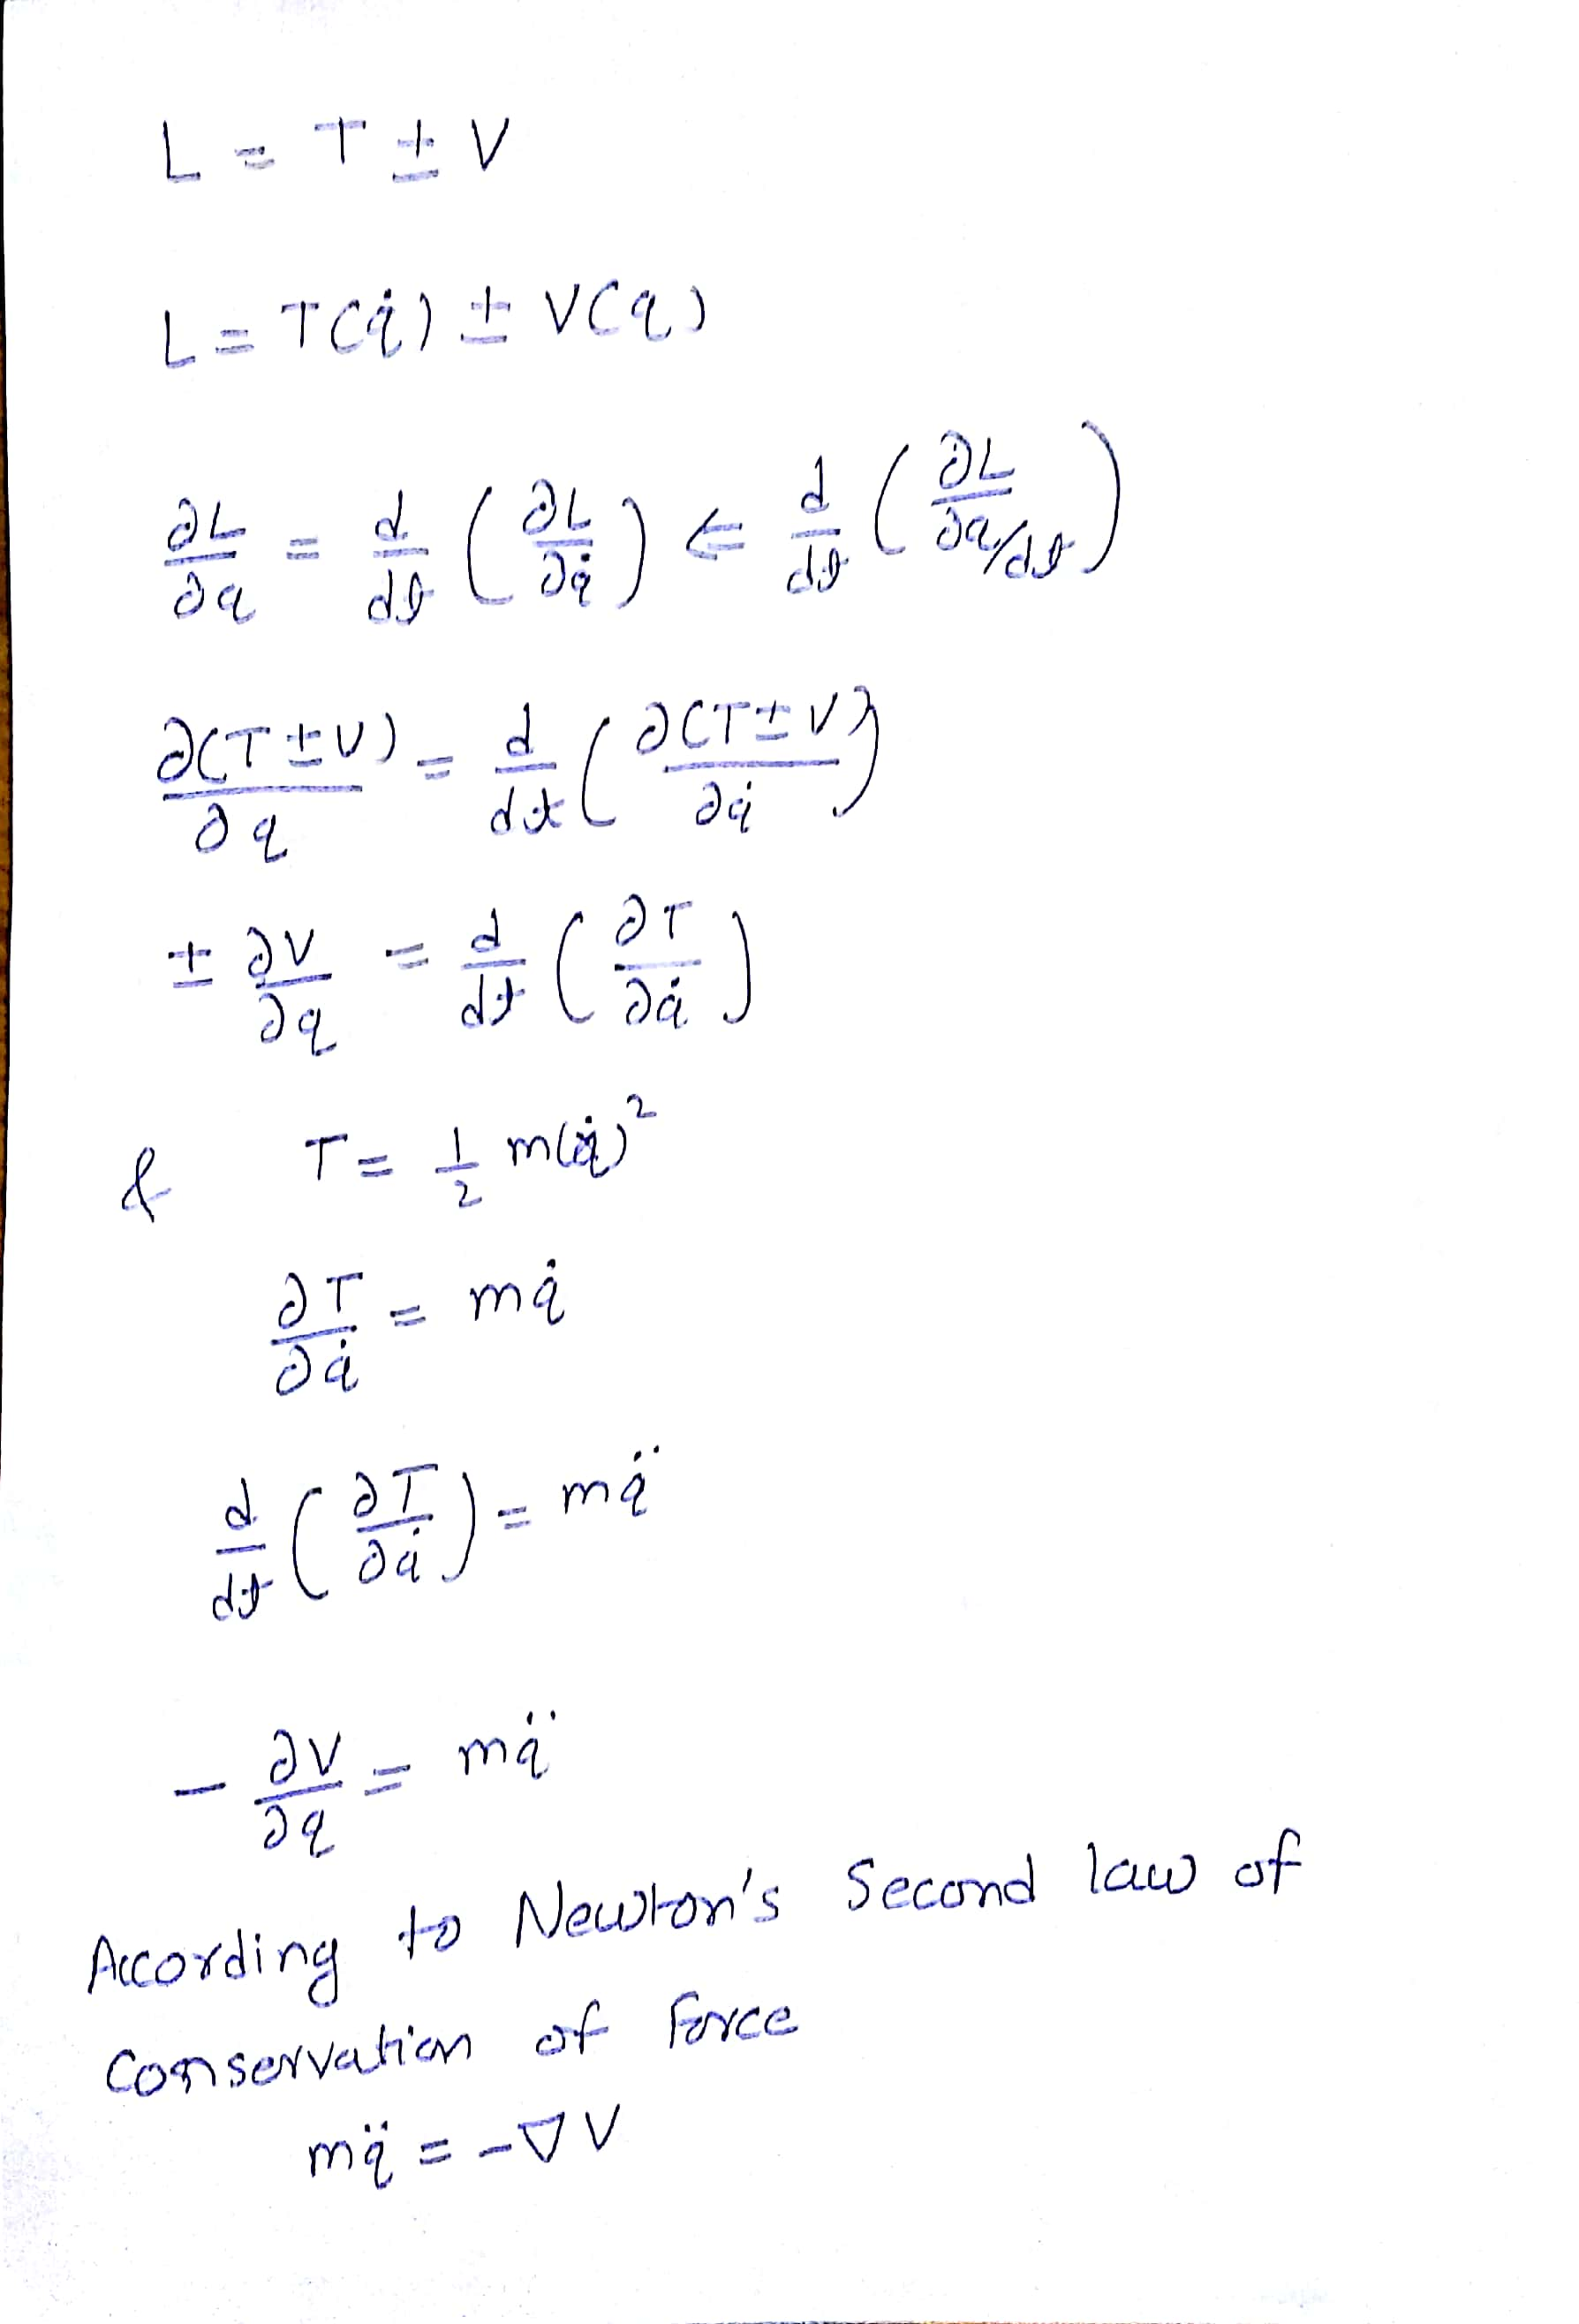 L = T ± V
L = T(q̇) ± V(q)
∂L/∂q = d/dt (∂L/∂q̇) ⇐ d/dt (∂L/∂q/dt)
∂(T ± V)/∂q = d/dt (∂(T ± V)/∂q̇)
± ∂V/∂q = d/dt (∂T/∂q̇)
& T = 1/2 m(q̇)²
∂T/∂q̇ = mq̇
d/dt (∂T/∂q̇) = mq̈
- ∂V/∂q = mq̈
According to Newton's Second law of
Conservation of Force
mq̈ = -∇V